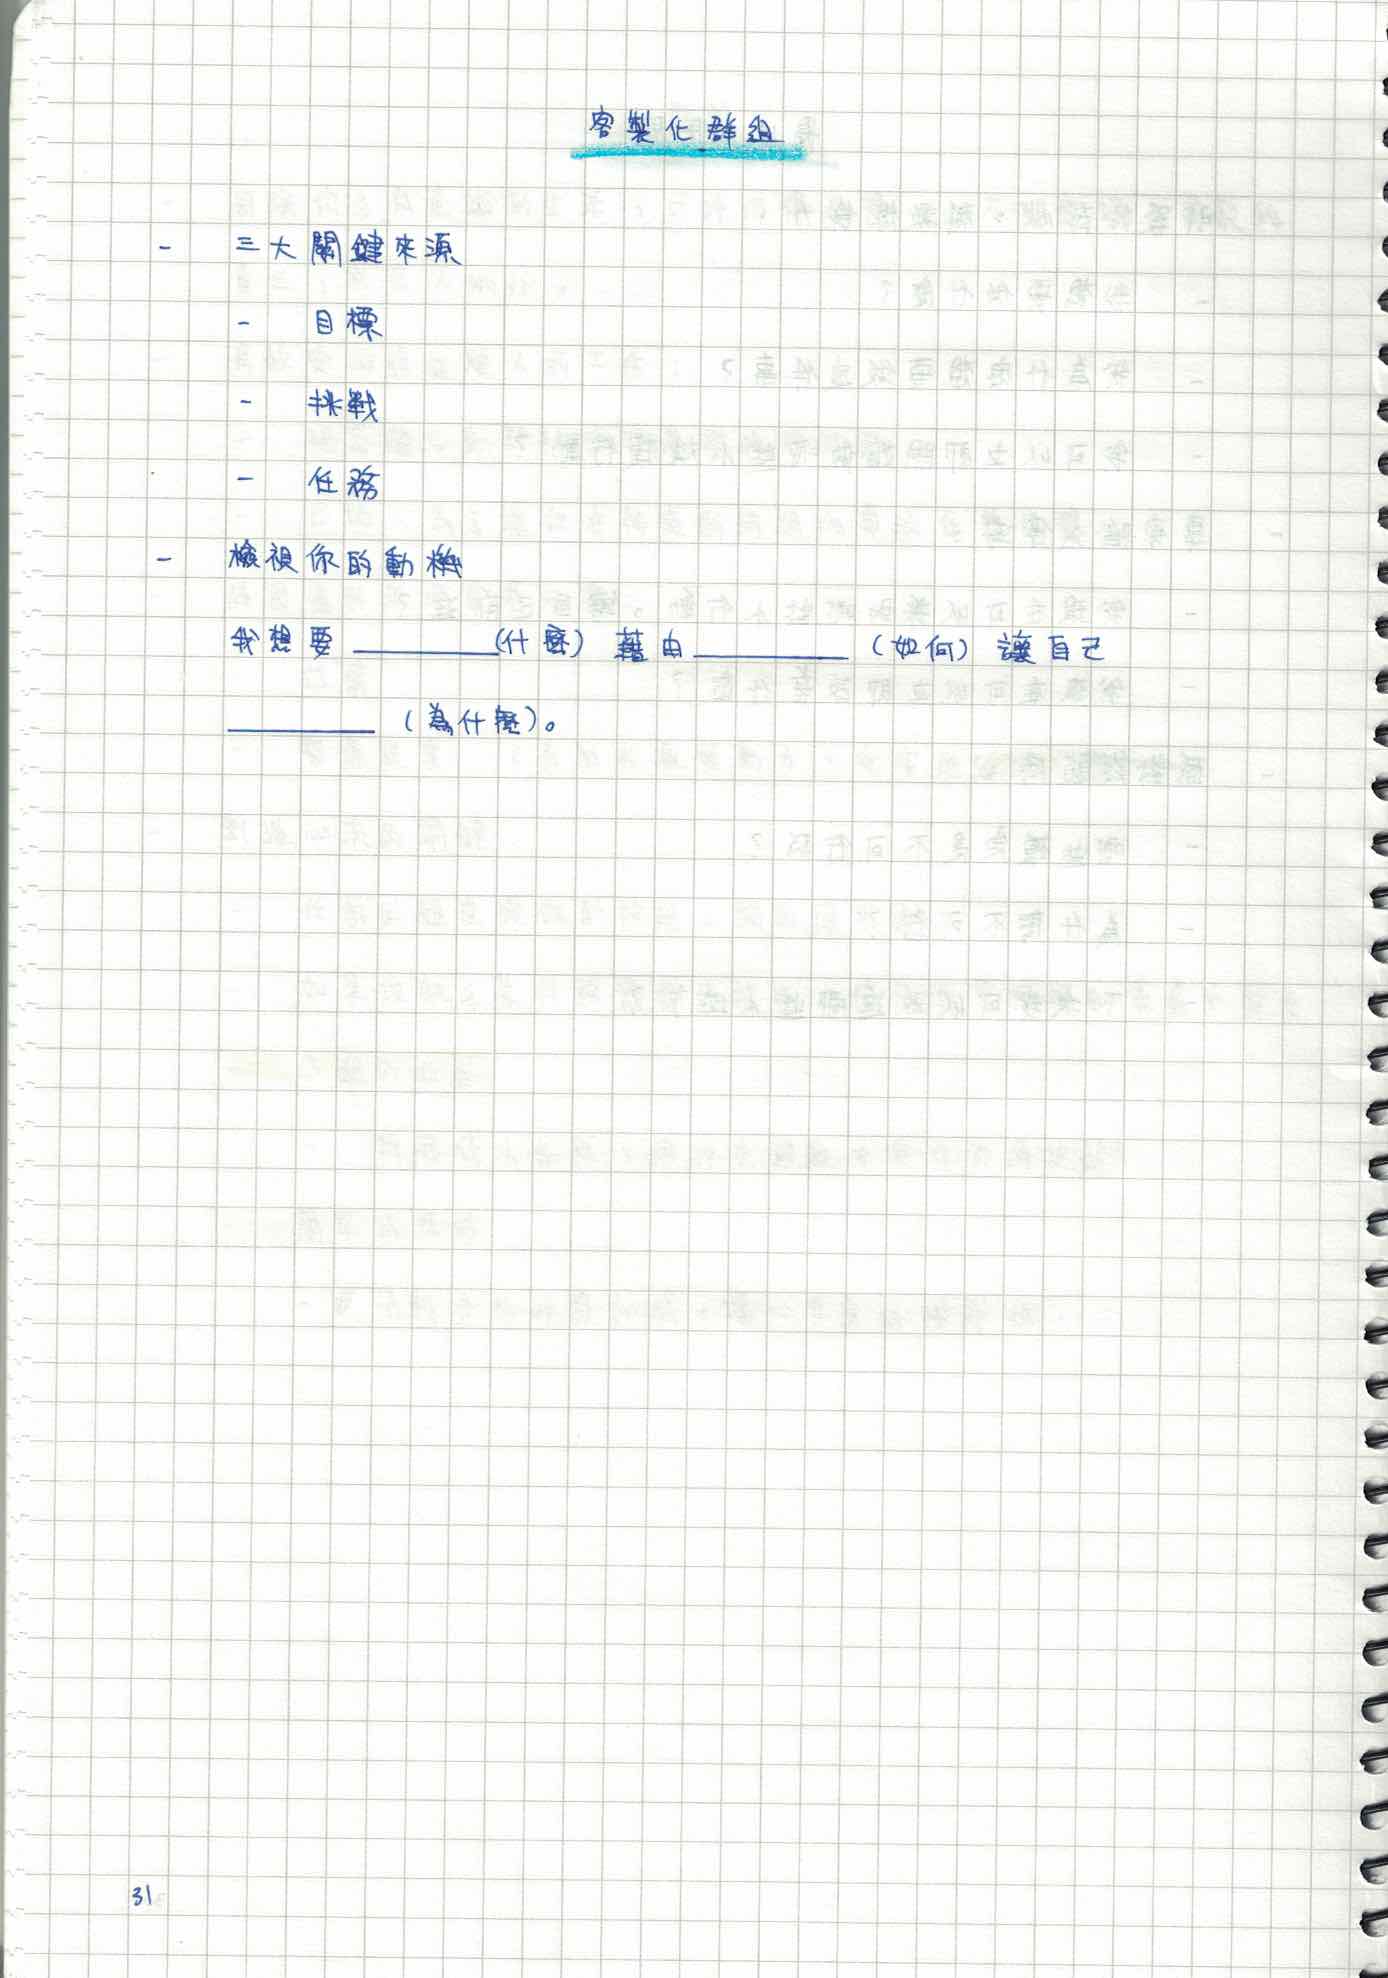 客製化群組
- 三大關鍵來源
- 目標
- 挑戰
- 任務
- 檢視你的動機
我想要 ________(什麼) 藉由 ________ (如何) 讓自己
________ (為什麼)。
31